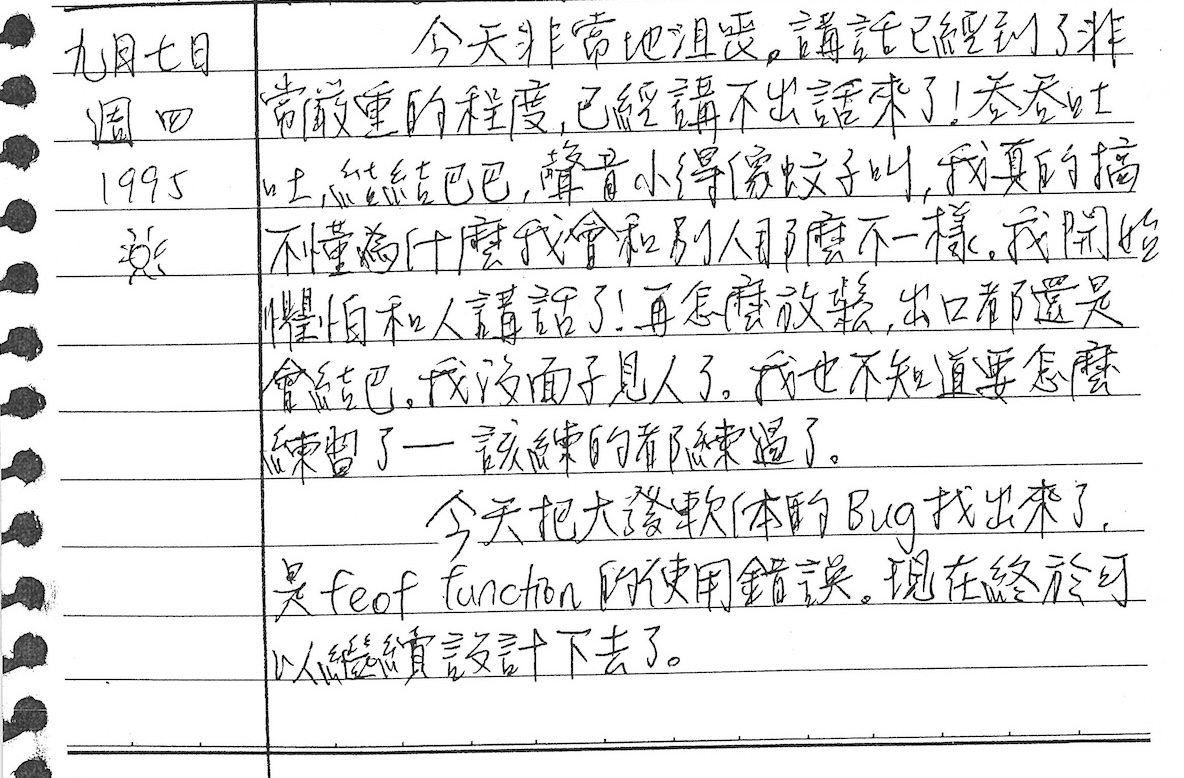 九月七日
週四
1995
今天非常地沮喪。講話已經到了非
常嚴重的程度,已經講不出話來了!吞吞吐
吐,結結巴巴,聲音小得像蚊子叫,我真的搞
不懂為什麼我會和別人那麼不一樣。我開始
懼怕和人講話了!再怎麼放鬆,出口都還是
會結巴。我沒面子見人了。我也不知道要怎麼
練習了一該練的都練過了。
今天把大發軟体的Bug找出來了,
是feof function的使用錯誤。現在終於可
以繼續設計下去了。